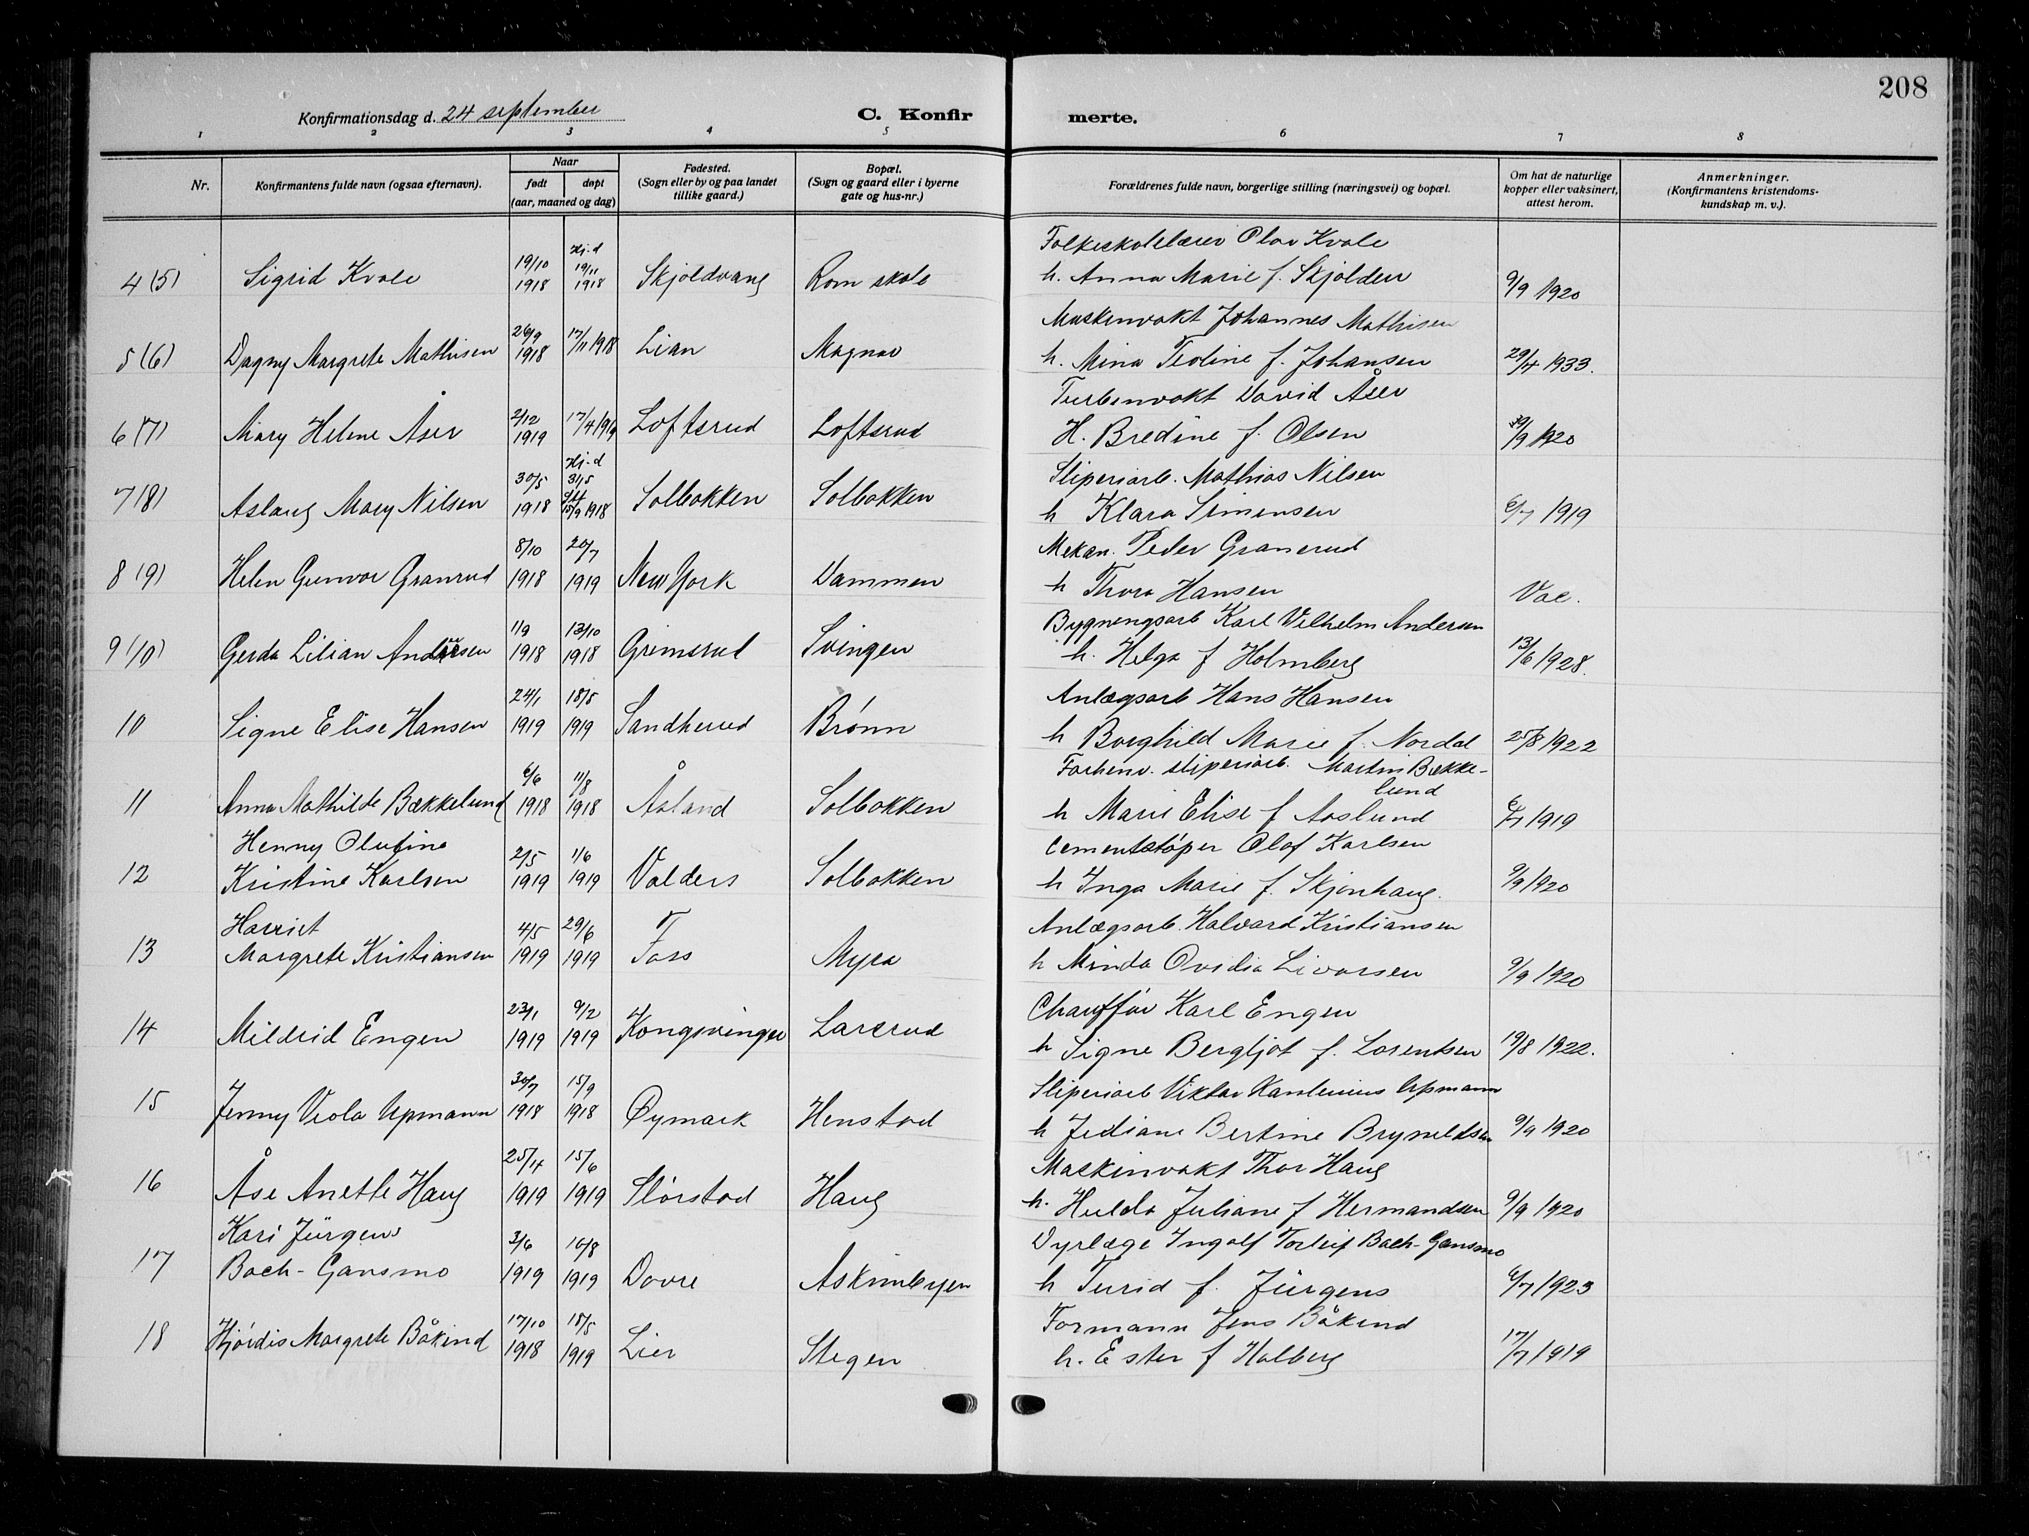 208
Konfirmationsdag d. 24 september C. Konfir merte.
1 2 3 4 5 6 7 8
Nr. Konfirmantens fulde navn (ogsaa efternavn). Naar født døpt (aar, maaned og dag) Fødested. (Sogn eller by og paa landet tillike gaard.) Bopæl. (Sogn og gaard eller i byerne gate og hus-nr.) Forældrenes fulde navn, borgerlige stilling (næringsvei) og bopæl. Om hat de naturlige kopper eller vaksinert, attest herom. Anmerkninger. (Konfirmantens kristendoms-kundskap m. v.).
Folkeskolelærer Olav Kvale
4 (5) Sigrid Kvale 19/10 1918 Hj.d 19/11 1918 Skjoldvang Rom skole h. Anna Marie f. Skjolden 9/9 1920
Maskinvakt Johannes Mathisen
5 (6) Dagny Margrete Mathisen 26/9 1918 17/11 1918 Lian Magnor h. Mina Teoline f. Johansen 29/4 1933.
Turbinvakt David Åser
6 (7) Mary Helene Åser 2/12 1919 17/4 1919 Loftsrud Loftsrud H. Bredine f. Olsen 30/9 1920
Sliperiarb. Mathias Nilsen
7 (8) Aslaug Mary Nilsen 30/5 1918 Hj.d 31/5 15/9 1918 Solbakken Solbakken h Klara Simensen 6/7 1919
Mekan. Peder Granerud
8 (9) Helen Gunvor Granrud 8/10 1918 20/7 1919 New York Dammen h Thora Hansen Vac.
Bygningsarb Karl Vilhelm Andersen
9 (10) Gerda Lilian Andersen 1/9 1918 13/10 1918 Grimsrud Svingen h. Helga f Holmberg 13/6 1928.
Anlægsarb Hans Hansen
10 Signe Elise Hansen 24/1 1919 18/5 1919 Sandherud Brønn h Borghild Marie f. Nordal 25/8 1922
Forhenv. sliperiarb. Martin Bække-
lund
11 Anna Mathilde Bækkelund 6/6 1918 11/8 1918 Åsland Solbakken h Marie Elise f Aaslund 6/7 1919
Henny Olufine Cementstøper Olaf Karlsen
12 Kristine Karlsen 2/5 1919 1/6 1919 Valders Solbakken h Inga Marie f. Skjønhaug. 9/9 1920
Harriet Anlægsarb. Halvard Kristiansen
13 Margrete Kristiansen 4/5 1919 29/6 1919 Foss Myra h Minda Ovidia Livarsen 9/9 1920
Chauffør Karl Engen
14 Mildrid Engen 23/1 1919 9/2 1919 Kongsvinger Larsrud h Signe Bergljot f. Lorentsen 19/8 1922.
Sliperiarb Viktor Upmann
15 Jenny Viola Upmann 30/7 1918 15/9 1918 Øymark Henstad h Jediane Bertine Bryneldsen 9/9 1920
Maskinvakt Thor Haug
16 Åse Anette Haug 25/4 1919 15/6 1919 Slorstad Haug h. Hulda Juliane f Hermandsen 9/9 1920
Kari Jürgens Dyrlæge Ingolf Torleif Bach-Gansmo
17 Bach-Gansmo 3/6 1919 10/8 1919 Dovre Askimbyen h Turid f. Jürgens 6/7 1923
Formann Jens Båkind
18 Hjørdis Margrete Båkind 17/10 1918 18/5 1919 Lier Stegen h. Ester f Halberg 17/7 1919